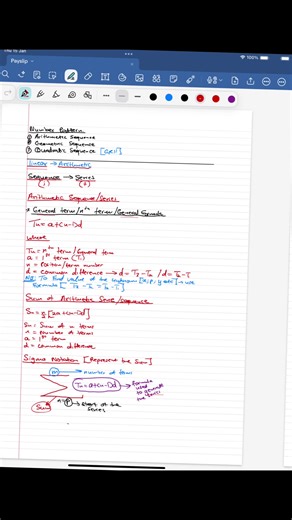 Thu 15 Jan
100%
Payslip
Number Pattern
① Arithmetic Sequence
② Geometric Sequence
③ Quadratic Sequence
Linear → Arithmetic
Sequence → Series
Arithmetic Sequence/Series
* General term/nth term/General formula
Tn = a+(n-1)d
where
Tn = nth term/General term
a = 1st term (T1)
n = Position/term number
d = Common difference → d = T3 - T2 / d = T2 - T1
NB: To find value of the unknown [x; p; y etc] → use
formula [T3 - T2 = T2 - T1]
Sum of Arithmetic Series/sequence
Sn = n/2 [2a+(n-1)d]
Sn = Sum of n terms
n = Number of terms
a = 1st term
d = common difference
Sigma Notation [Represent the Sum]
→ number of terms
Tn = a+(n-1)d → formula used to generate the series
Sum
n = → start of the series